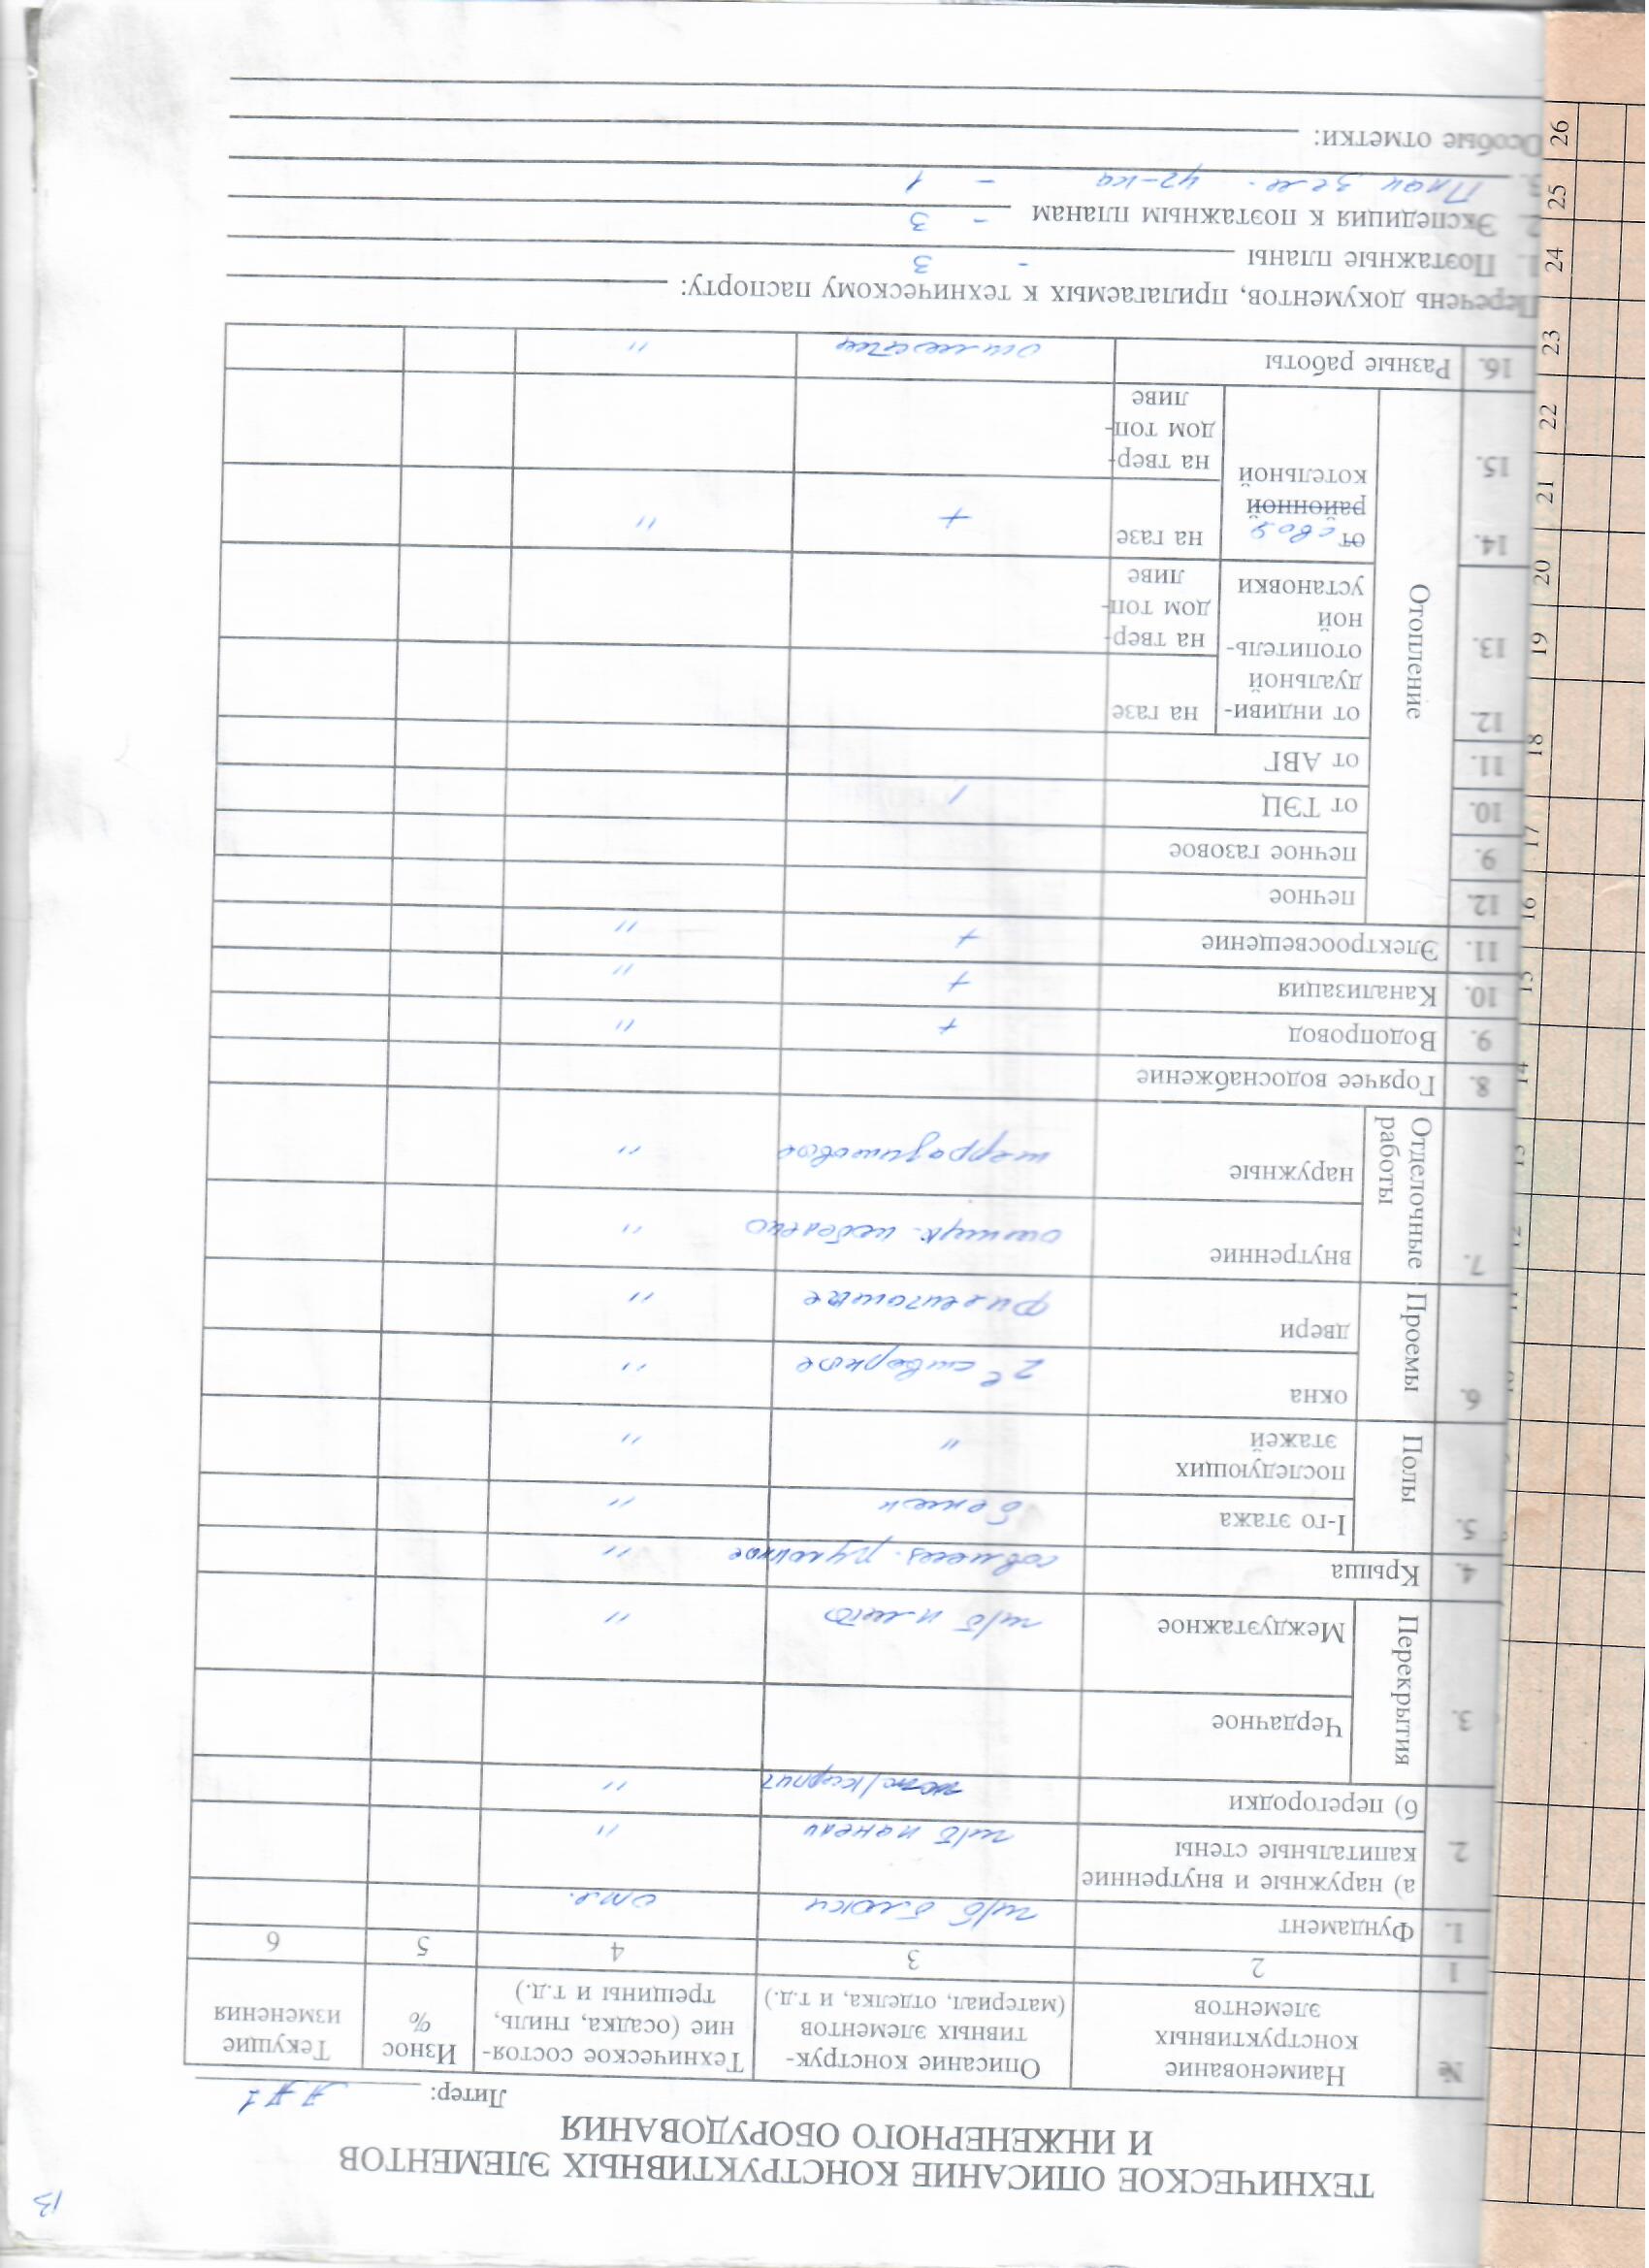 13
ТЕХНИЧЕСКОЕ ОПИСАНИЕ КОНСТРУКТИВНЫХ ЭЛЕМЕНТОВ
И ИНЖЕНЕРНОГО ОБОРУДОВАНИЯ
Литер:
№ Наименование конструктивных элементов Описание конструк- тивных элементов (материал, отделка, и т.д.) Техническое состоя- ние (осадка, гниль, трещины и т.д.) Износ % Текущие изменения
1 2 3 4 5 6
1. Фундамент ж/б блоки
2. а) наружные и внутренние капитальные стены ж/б панели "
б) перегородки кирпич "
3. Перекрытия Чердачное
Междуэтажное ж/б плиты "
4. Крыша совмещ. рулонное "
5. Полы I-го этажа бетон "
последующих этажей " "
6. Проемы окна 2е створные "
двери филенчатые "
7. Отделочные работы внутренние оштук. побелено "
наружные терразитовое "
8. Горячее водоснабжение
9. Водопровод + "
10. Канализация + "
11. Электроосвещение + "
12. Отопление печное
9. печное газовое
10. от ТЭЦ /
11. от АВГ
12. от индиви- дуальной отопитель- ной установки на газе
13. на твер- дом топ- ливе
14. от районной котельной на газе + "
15. на твер- дом топ- ливе
16. Разные работы отмостки "
Перечень документов, прилагаемых к техническому паспорту:
1. Поэтажные планы - 3
2. Экспедиция к поэтажным планам - 3
3. План зем. уч-ка - 1
Особые отметки:
12
13
14
15
16
17
18
19
20
21
22
23
24
25
26